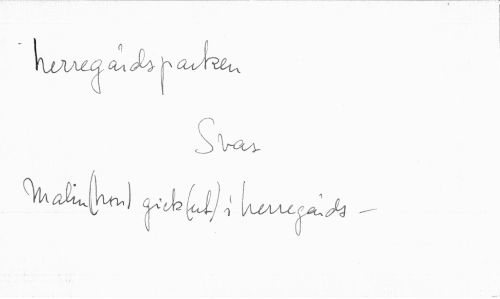 herregårdsparken
Svar
Malin (hon) gick (ut) i herregårds –